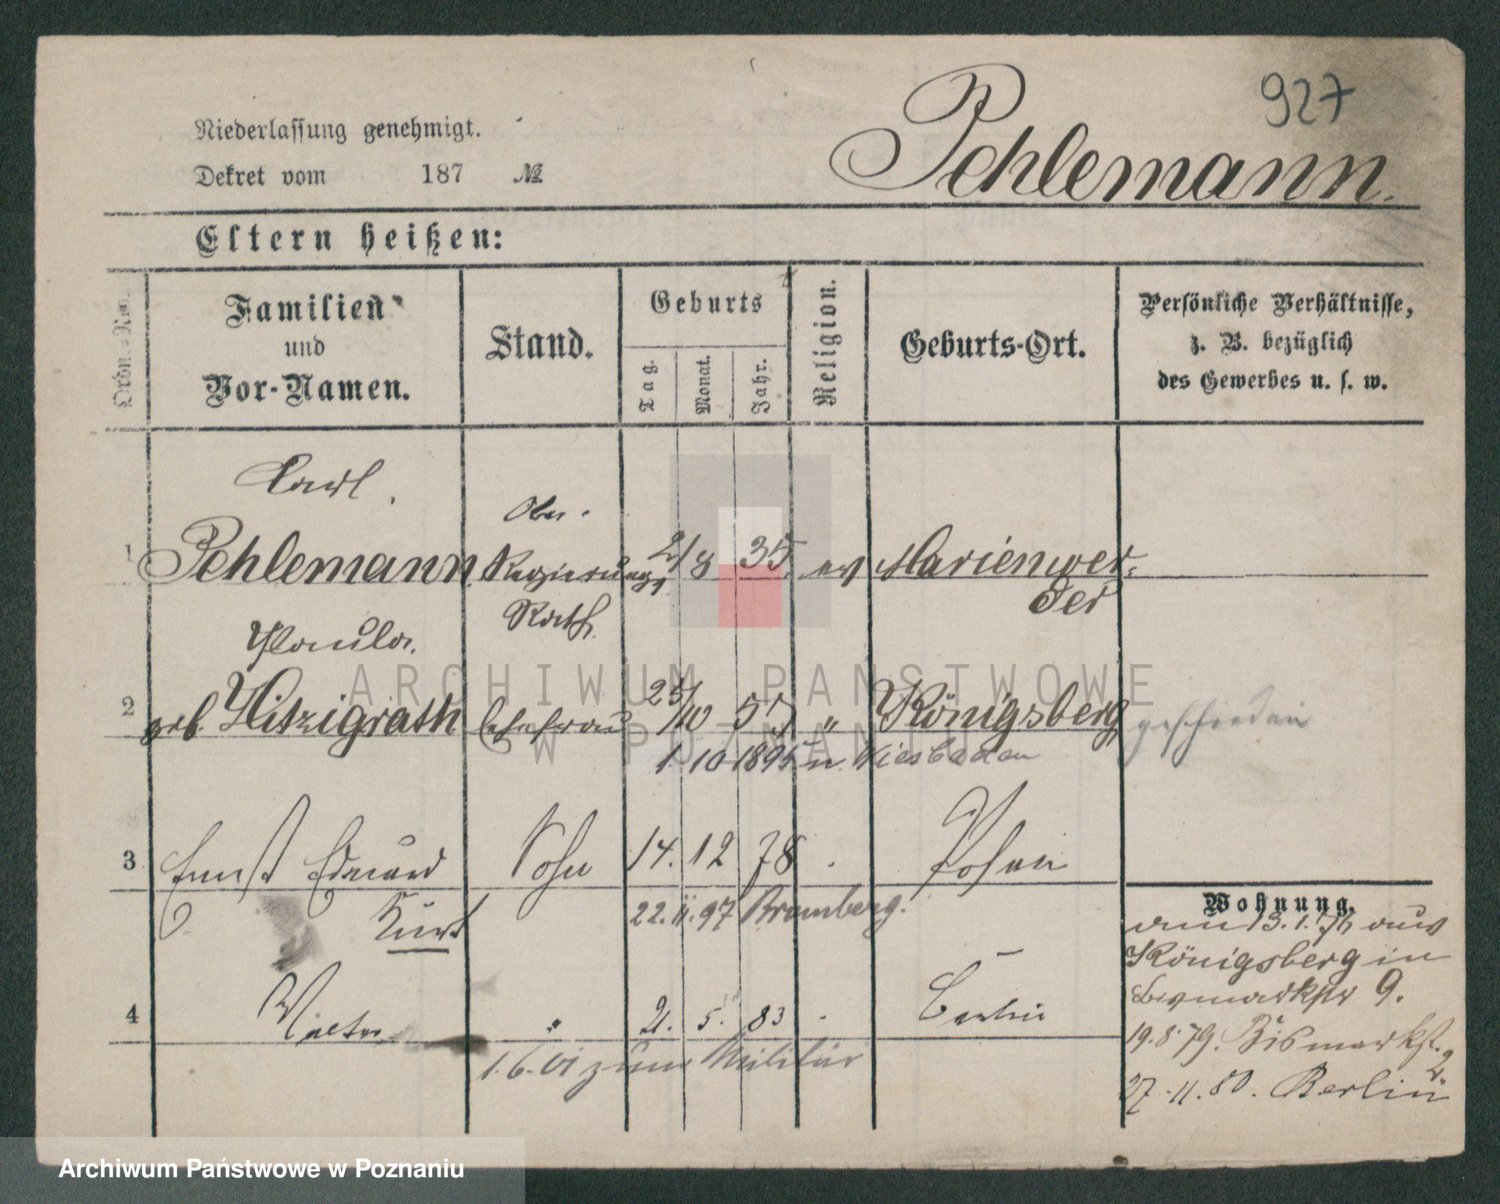 927
Niederlassung genehmigt.
Dekret vom 187 №
Pehlemann.
Eltern heißen:
Ordn.-No.
Familien
und
Vor-Namen.
Stand.
Geburts
Tag.
Monat.
Jahr.
Religion.
Geburts-Ort.
Persönliche Verhältnisse,
z. B. bezüglich
des Gewerbes u. s. w.
Carl
Ober-
1 Pehlemann Regierungs 2/8 35 ev Marienwer-
der
Rath
Paula
2 geb. Hitzigrath Ehefrau 25/10 57 " Königsberg geschieden
1. 10 1895 n. Wiesbaden
3 Ernst Eduard Sohn 14. 12 78 Posen
Kurt 22. 11. 97 Bromberg.
Wohnung.
am 13.1.76 aus
Königsberg in
Bismarkstr 9.
4 Walter " 21. 5. 83 Berlin
19.8.79. Bismarkst. 2.
1.6.01 zum Militär
27.11.80. Berlin
ARCHIWUM PAŃSTWOWE
W POZNANIU
Archiwum Państwowe w Poznaniu